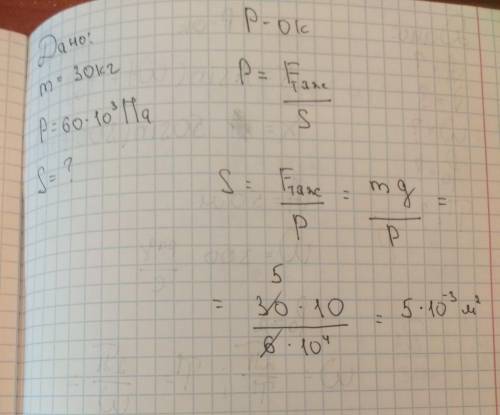 Дано:
m = 30кг
P = 60·10³ Па
S = ?
P - ок
P = Fтяж / S
S = Fтяж / P = mg / P =
5
= 30·10 / 6·10⁴ = 5·10⁻³ м²